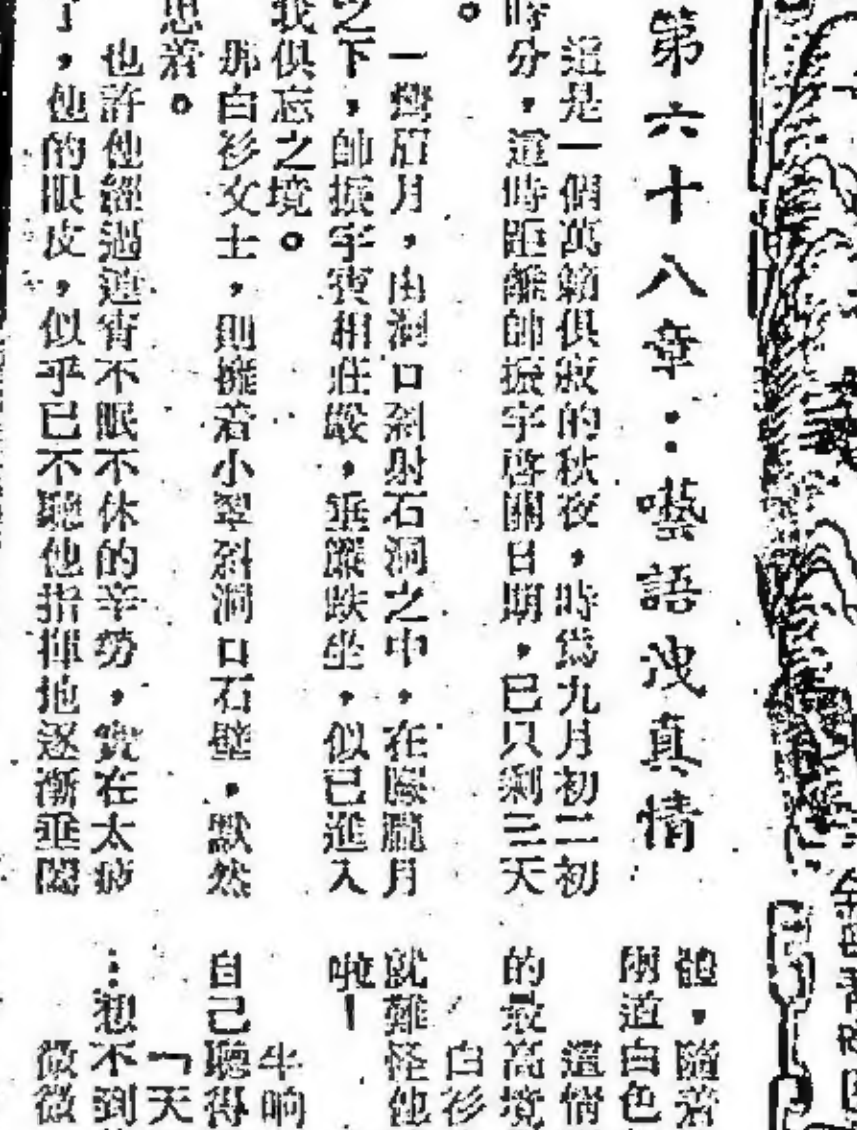 第六十八章：囈語洩真情
這是一個萬籟俱寂的秋夜，時為九月初二初
時分，這時距離帥振宇啓關日期，已只剩三天
。
一彎眉月，由洞口斜射石洞之中，在朦朧月
之下，帥振宇寶相莊嚴，垂簾趺坐，似已進入
我俱忘之境。
那白衫女士，則擁着小翠斜洞口石壁，默然
思着。
也許他經過連宵不眠不休的辛勞，實在太疲
了，他的眼皮，似乎已不聽他指揮地逐漸垂闔
體，隨着
兩道白色
這情
的最高境
白衫
就難怪他
啦！
半晌
自己聽得
「天
…想不到
微微